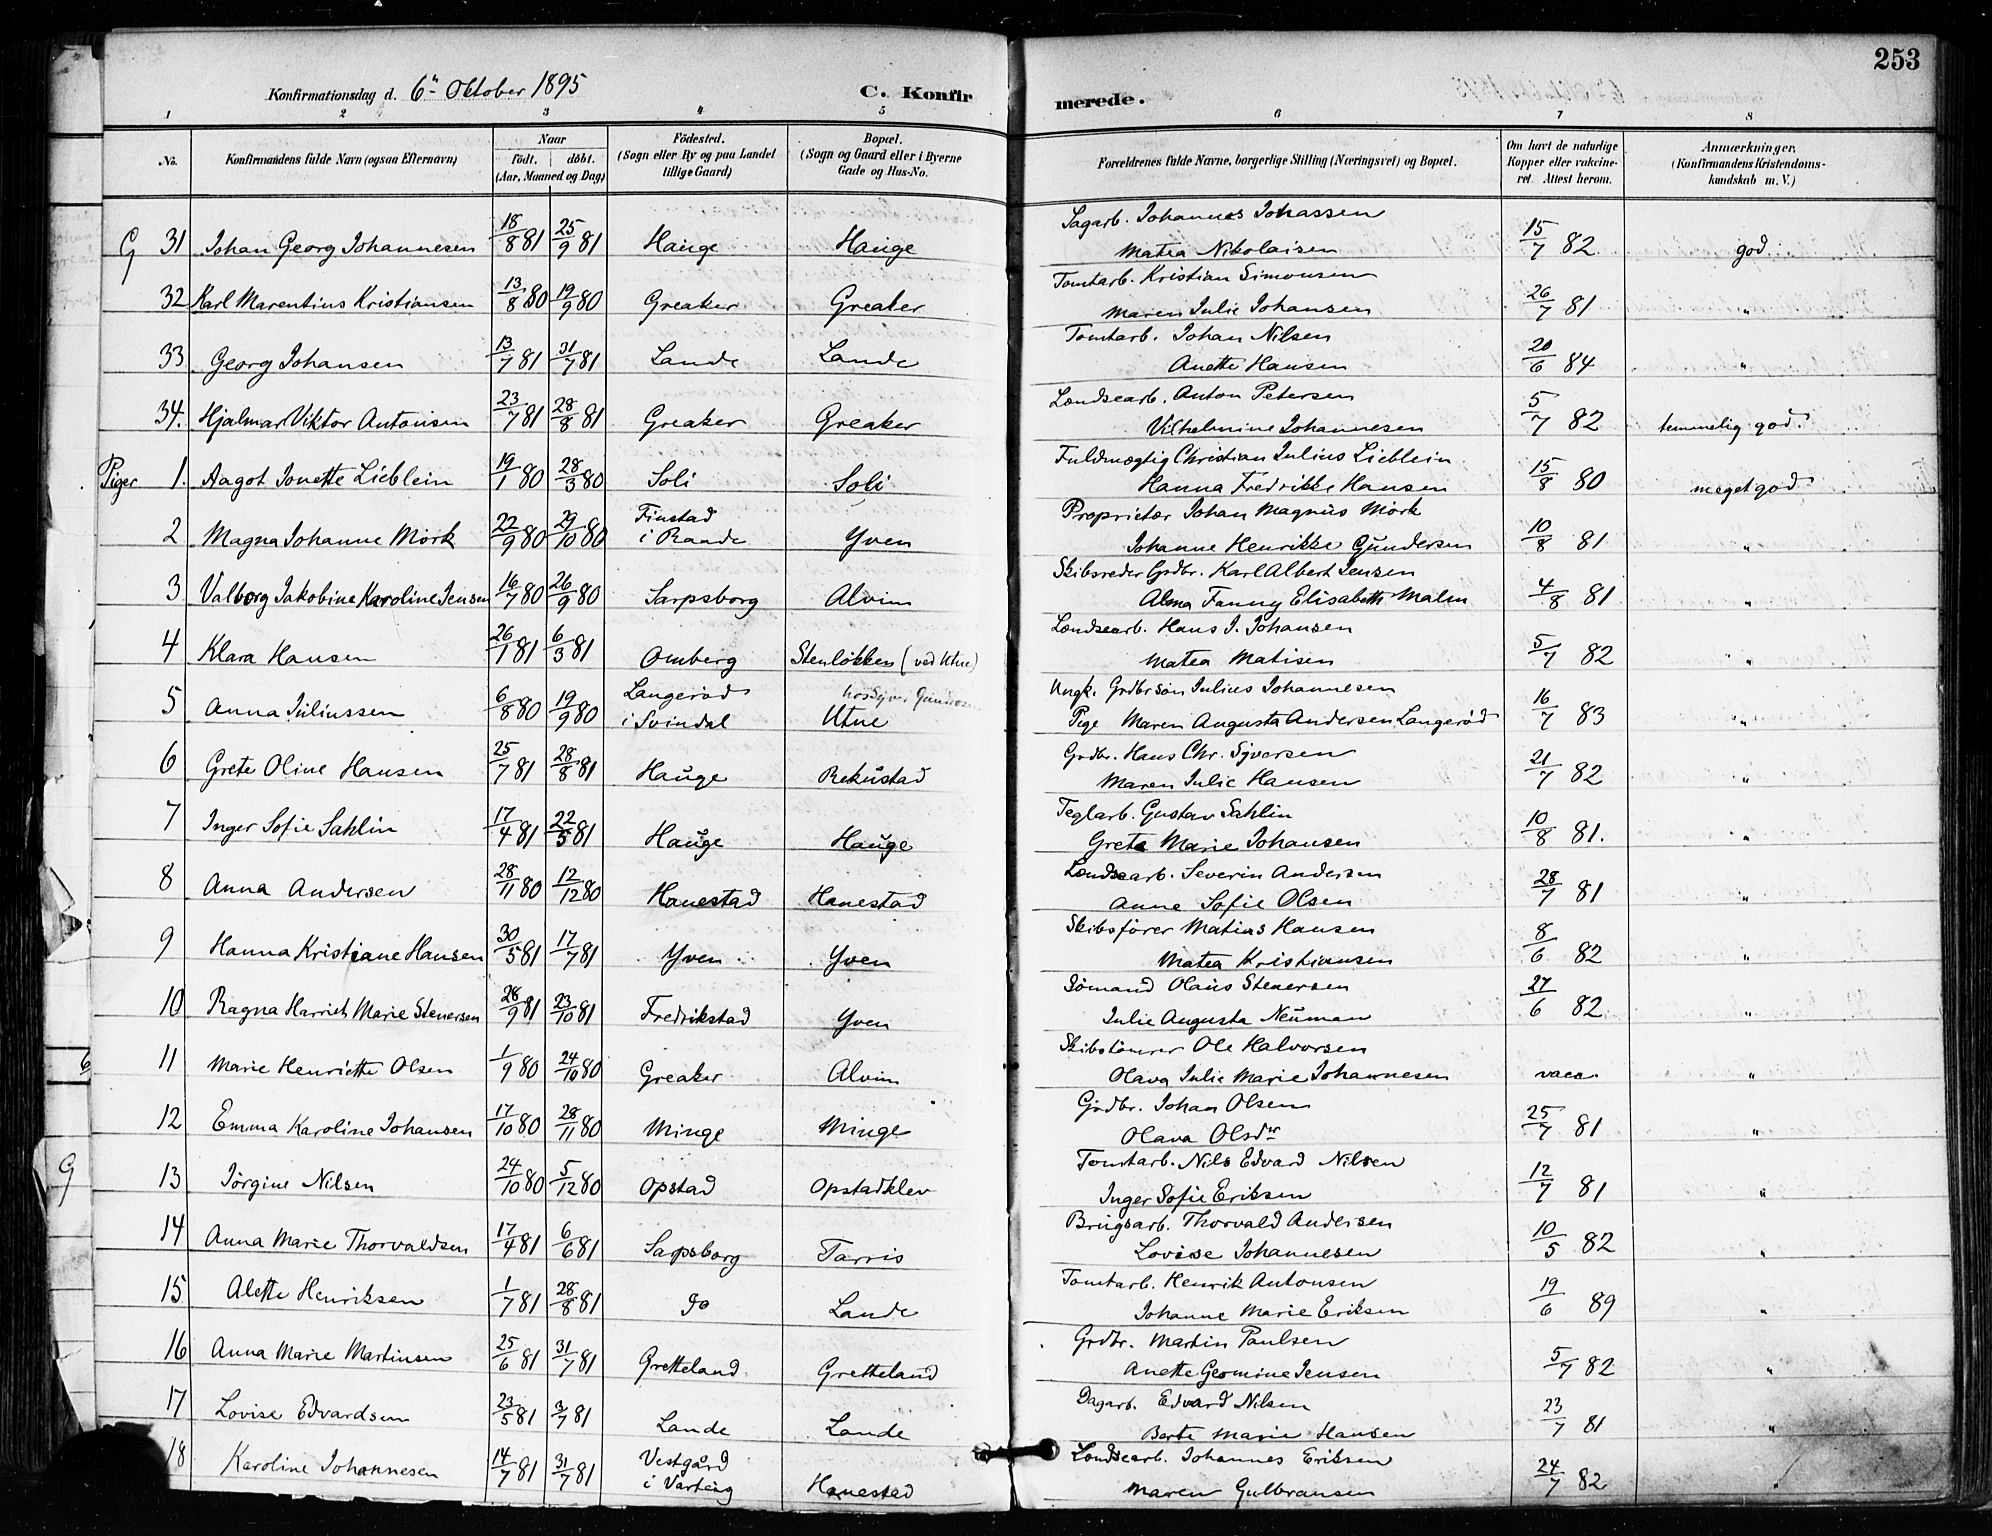 253
Konfirmationsdag d. 6te Oktober 1895 C. Konfir merede.
1 2 3 4 5 6 7 8
No. Konfirmandens fulde Navn (ogsaa Efternavn) Naar Født. døbt. (Aar, Maaned og Dag) Fødested. (Sogn eller By og paa Landet tillige Gaard) Bopæl. (Sogn og Gaard eller i Byerne Gade og Hus-No. Forældrenes fulde Navne, borgerlige Stilling (Næringsvei) og Bopæl. Om havt de naturlige Kopper eller vakcineret. Attest herom. Anmærkninger. (Konfirmandens Kristendomskundskab m. V.)
Sagarb. Johannes Johassen
G 31 Johan Georg Johannesen 18/8 81 25/9 81 Hauge Hauge Matea Nikolaisen 15/7 82 god
Tomtarb. Kristian Simonsen
32 Karl Marentius Kristiansen 13/8 80 19/9 80 Greaker Greaker Maren Julie Johansen 26/7 81 "
Tomtarb. Johan Nilsen
33 Georg Johansen 13/7 81 31/7 81 Lande Lande Anette Hansen 20/6 84 "
Londsearb. Anton Petersen
34. Hjalmar Viktor Antonsen 23/7 81 28/8 81 Greaker Greaker Vilhelmine Johannesen 5/7 82 temmelig god.
Fuldmægtig Christian Julius Lieblein
Piger 1. Aagot Jonette Lieblein 19/1 80 28/3 80 Soli Soli Hanna Fredrikke Hansen 15/8 80 meget god
Finstad Proprietær Johan Magnus Mørk
2 Magna Johanne Mørk 22/9 80 29/10 80 i Raade Yven Johanne Henrikke Gundersen 10/8 81 "
Skibsreder Grdbr. Karl Albert Jensen
3 Valborg Jakobine Karoline Jensen 16/7 80 26/9 80 Sarpsborg Alvim Alma Fanny Elisabeth Malm 4/8 81 "
Londsearb. Hans J. Johansen
4 Klara Hansen 26/1 81 6/3 81 Omberg Stenløkken (ved Utne) Matea Matisen 5/7 82 "
Langerød hos Syver Ungk. Grdbrsøn Julius Johannesen
5 Anna Juliussen 6/8 80 19/9 80 i Svindal Utne Pige Maren Augusta Andersen Langerød 16/7 83 "
Grdbr. Hans Chr. Syversen
6 Grete Oline Hansen 25/7 81 28/8 81 Hauge Rekustad Maren Julie Hansen 21/7 82 "
Teglarb. Gustav Sahlin
7 Inger Sofie Sahlin 17/4 81 22/5 81 Hauge Hauge Grete Marie Johansen 10/8 81. "
Londsearb. Severin Andersen
8 Anna Andersen 28/11 80 12/12 80 Hanestad Hanestad Anne Sofie Olsen 28/7 81 "
Skibsfører Matias Hansen
9 Hanna Kristiane Hansen 30/5 81 17/7 81 Yven Yven Matea Kristiansen 8/6 82 "
Sømand Olaus Stenersen
10 Ragna Harriet Marie Stenersen 28/9 81 23/10 81 Fredrikstad Yven Julie Augusta Neuman 27/6 82 "
Skibstømrer Ole Halvorsen
11 Marie Henriette Olsen 1/9 80 24/10 80 Greaker Alvim Olava Julie Marie Johannesen vacc. "
Grdbr. Johan Olsen
12 Emma Karoline Johansen 17/10 80 28/11 80 Minge Minge Olava Olsdtr 25/7 81 "
Tomtarb. Nils Edvard Nilsen
13 Jørgine Nilsen 24/10 80 5/12 80 Opstad Opstadklev Inger Sofie Eriksen 12/7 81 "
Brugsarb. Thorvald Andersen
14 Anna Marie Thorvaldsen 17/4 81 6/6 81 Sarpsborg Tarris Lovise Johannesen 10/5 82 "
Tomtarb. Henrik Antonsen
15 Alette Henriksen 1/7 81 28/8 81 do Lande Johanne Marie Eriksen 19/6 89 "
Grdbr. Martin Paulsen
16 Anna Marie Martinsen 25/6 81 31/7 81 Gretteland Gretteland Anette Geomine Jensen 5/7 82 "
Dagarb. Edvard Nilsen
17 Lovise Edvardsen 23/5 81 3/7 81 Lande Lande Berte Marie Hansen 23/7 81 "
Vestgård Londsearb. Johannes Eriksen
18 Karoline Johannesen 14/7 81 31/7 81 i Varteig Hanestad Maren Gulbransen 24/7 82 "